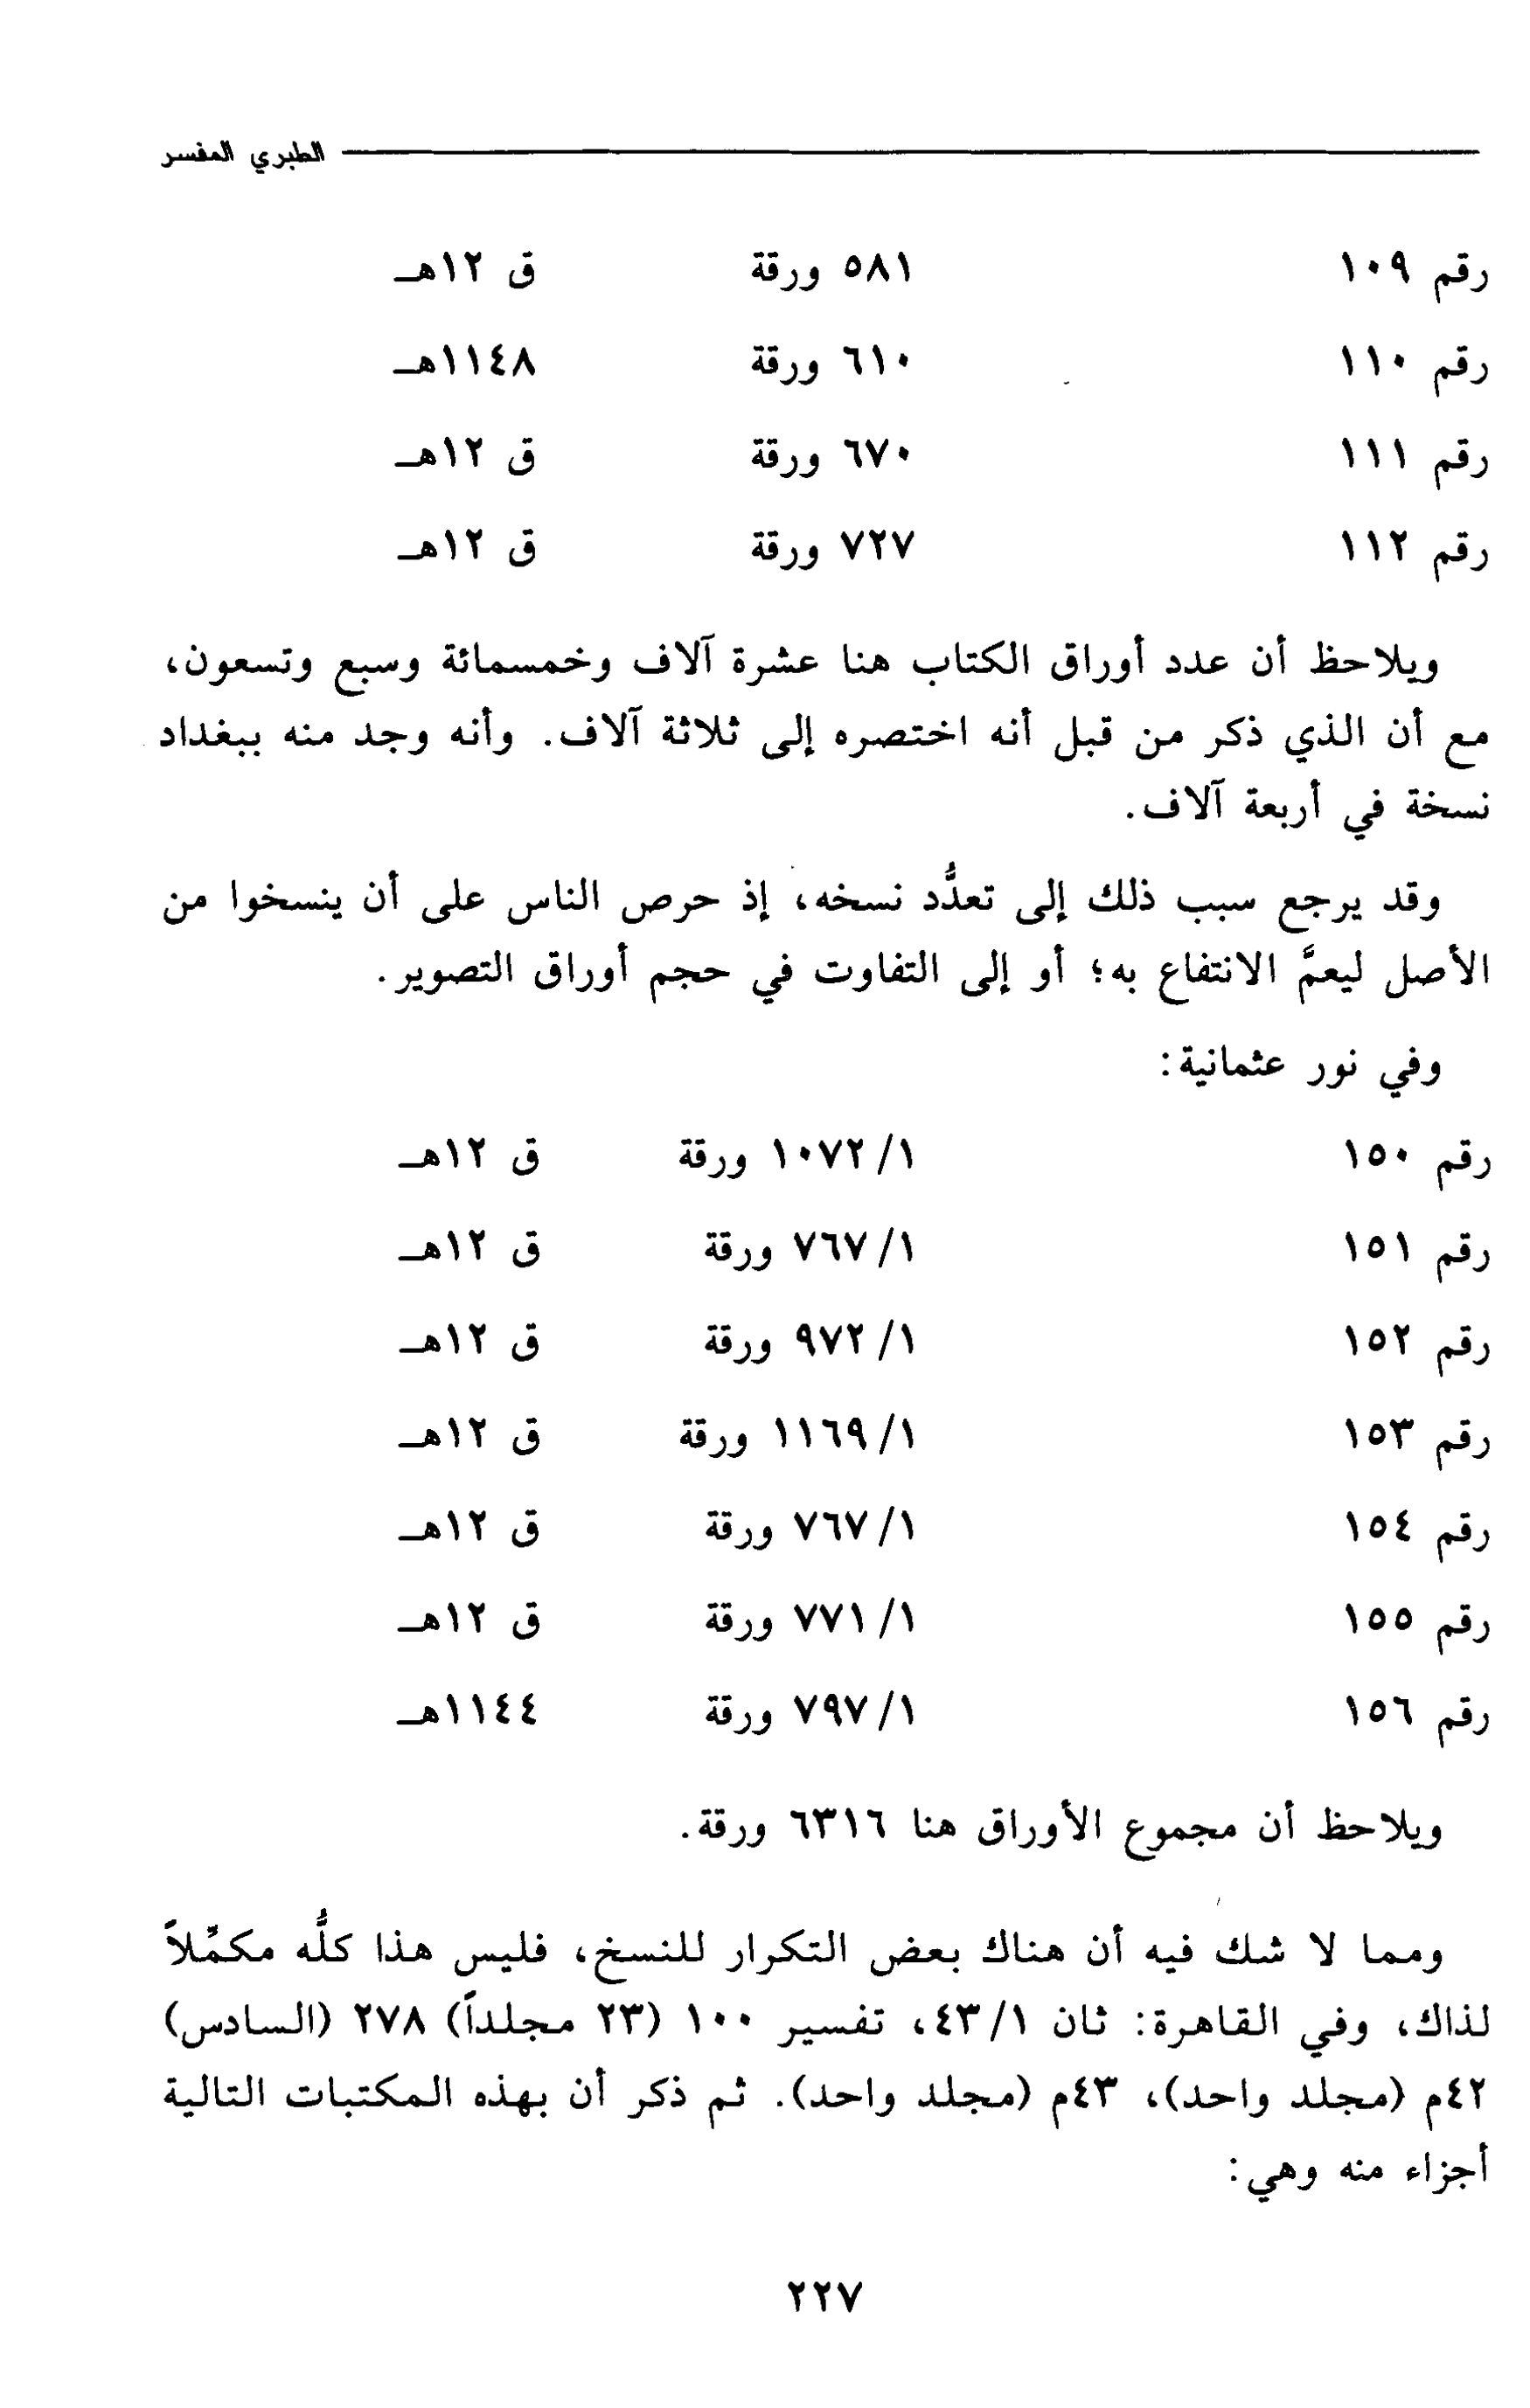 الطبري المفسر
رقم ١٠٩ ٥٨١ ورقة ق ١٢هـ
رقم ١١٠ ٦١٠ ورقة ١١٤٨هـ
رقم ١١١ ٦٧٠ ورقة ق ١٢هـ
رقم ١١٢ ٧٢٧ ورقة ق ١٢هـ
ويلاحظ أن عدد أوراق الكتاب هنا عشرة آلاف وخمسمائة وسبع وتسعون،
مع أن الذي ذكر من قبل أنه اختصره إلى ثلاثة آلاف. وأنه وجد منه ببغداد
نسخة في أربعة آلاف.
وقد يرجع سبب ذلك إلى تعدُّد نسخه، إذ حرص الناس على أن ينسخوا من
الأصل ليعمَّ الانتفاع به؛ أو إلى التفاوت في حجم أوراق التصوير.
وفي نور عثمانية:
رقم ١٥٠ ١/ ١٠٧٢ ورقة ق ١٢هـ
رقم ١٥١ ١/ ٧٦٧ ورقة ق ١٢هـ
رقم ١٥٢ ١/ ٩٧٢ ورقة ق ١٢هـ
رقم ١٥٣ ١/ ١١٦٩ ورقة ق ١٢هـ
رقم ١٥٤ ١/ ٧٦٧ ورقة ق ١٢هـ
رقم ١٥٥ ١/ ٧٧١ ورقة ق ١٢هـ
رقم ١٥٦ ١/ ٧٩٧ ورقة ١١٤٤هـ
ويلاحظ أن مجموع الأوراق هنا ٦٣١٦ ورقة.
ومما لا شك فيه أن هناك بعض التكرار للنسخ، فليس هذا كلُّه مكمِّلاً
لذاك، وفي القاهرة: ثان ١/ ٤٣، تفسير ١٠٠ (٢٣ مجلداً) ٢٧٨ (السادس)
٤٢م (مجلد واحد)، ٤٣م (مجلد واحد). ثم ذكر أن بهذه المكتبات التالية
أجزاء منه وهي:
٢٢٧